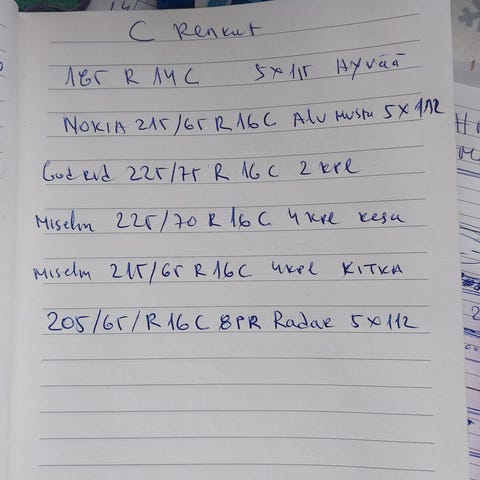 C Renkut
185 R 14 C 5x115 Hyvää
NOKIA 215/65 R 16 C Alu musta 5x112
Godkid 225/75 R 16 C 2 kpl
Miselin 225/70 R 16 C 4 kpl kesa
Miselin 215/65 R 16 C 4kpl KITKA
205/65/R 16 C 8PR Radar 5x112